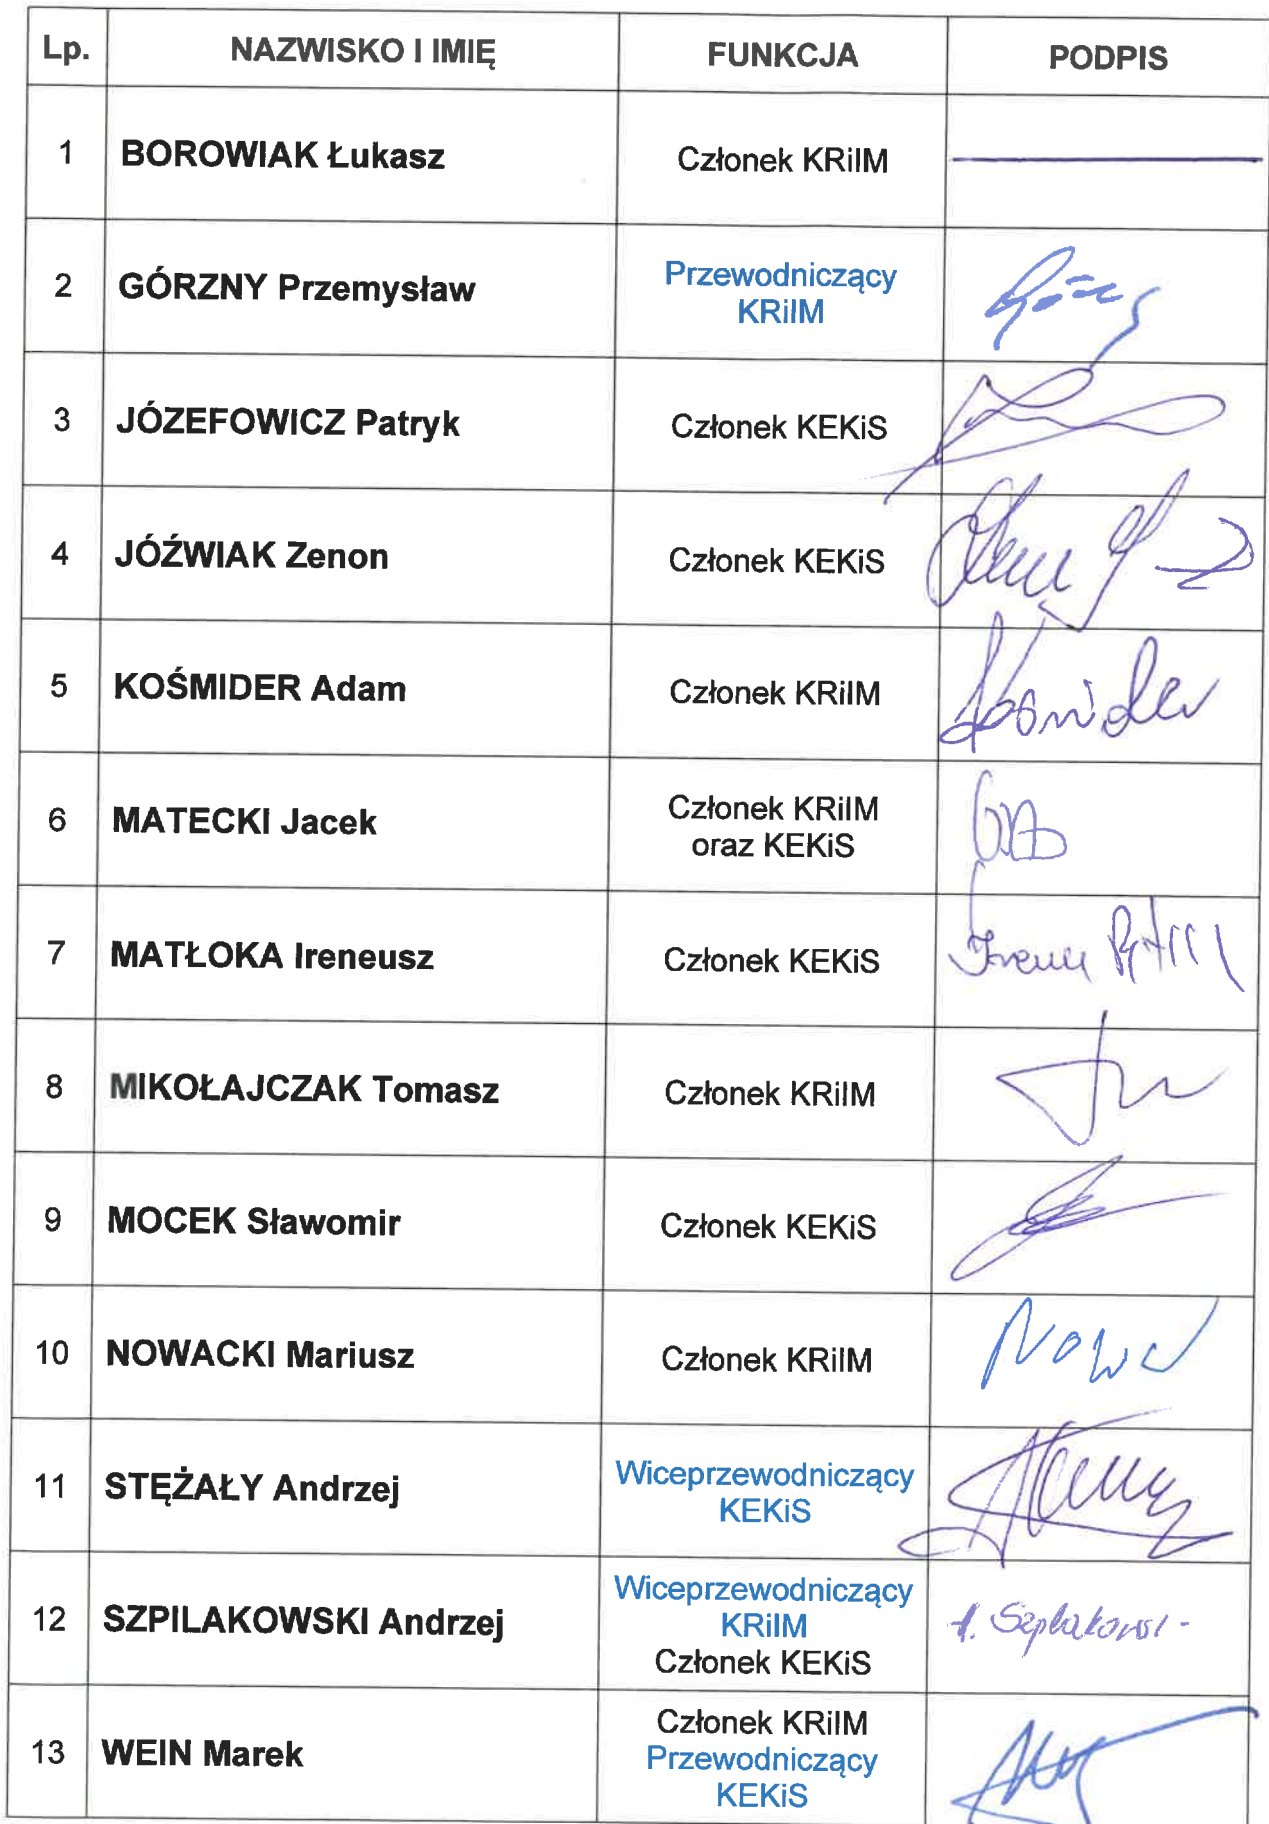 Lp. NAZWISKO I IMIĘ FUNKCJA PODPIS
1 BOROWIAK Łukasz Członek KRiIM
2 GÓRZNY Przemysław Przewodniczący
KRiIM
3 JÓZEFOWICZ Patryk Członek KEKiS
4 JÓŹWIAK Zenon Członek KEKiS
5 KOŚMIDER Adam Członek KRiIM Kośmider
6 MATECKI Jacek Członek KRiIM
oraz KEKiS
7 MATŁOKA Ireneusz Członek KEKiS
8 MIKOŁAJCZAK Tomasz Członek KRiIM
9 MOCEK Sławomir Członek KEKiS
10 NOWACKI Mariusz Członek KRiIM
11 STĘŻAŁY Andrzej Wiceprzewodniczący
KEKiS
12 SZPILAKOWSKI Andrzej Wiceprzewodniczący
KRiIM
Członek KEKiS
13 WEIN Marek Członek KRiIM
Przewodniczący
KEKiS